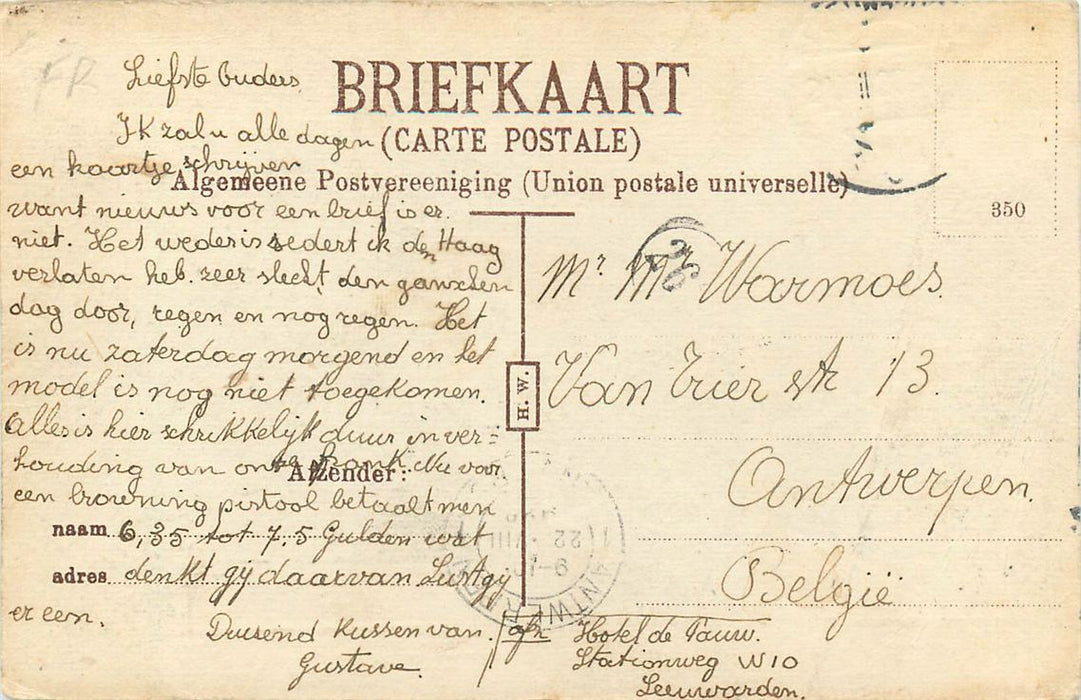 BRIEFKAART
(CARTE POSTALE)
Algemeene Postvereeniging (Union postale universelle)
350
Liefste Ouders
Ik zal u alle dagen
een kaartje schrijven
want nieuws voor een brief is er
niet. Het weder is sedert ik den Haag
verlaten heb. zeer slecht, den ganschen
dag door, regen en nog regen. Het
is nu zaterdag morgend en het
model is nog niet toegekomen.
Alles is hier schrikkelijk duur in ver=
houding van onze frank. Nu voor
Afzender:
een browning pistool betaalt men
naam 6,35 tot 7.5 Gulden wat
adres denkt gij daarvan Lust gij
er een.
Duisend kussen van
Gustave.
H. W.
Mr Mr Warmoes.
Van Trier str 13.
Antwerpen.
België
Hotel de Pauw.
Stationweg W10
Leeuwarden.
FR